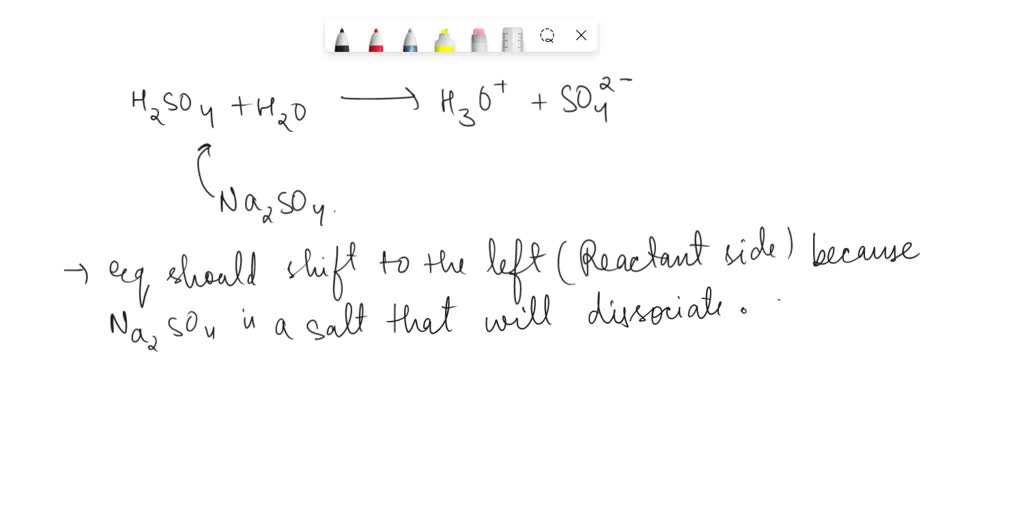 H₂SO₄ + H₂O ⟶ H₃O⁺ + SO₄²⁻
Na₂SO₄.
→ eq should shift to the left (Reactant side) because
Na₂SO₄ is a salt that will dissociate.